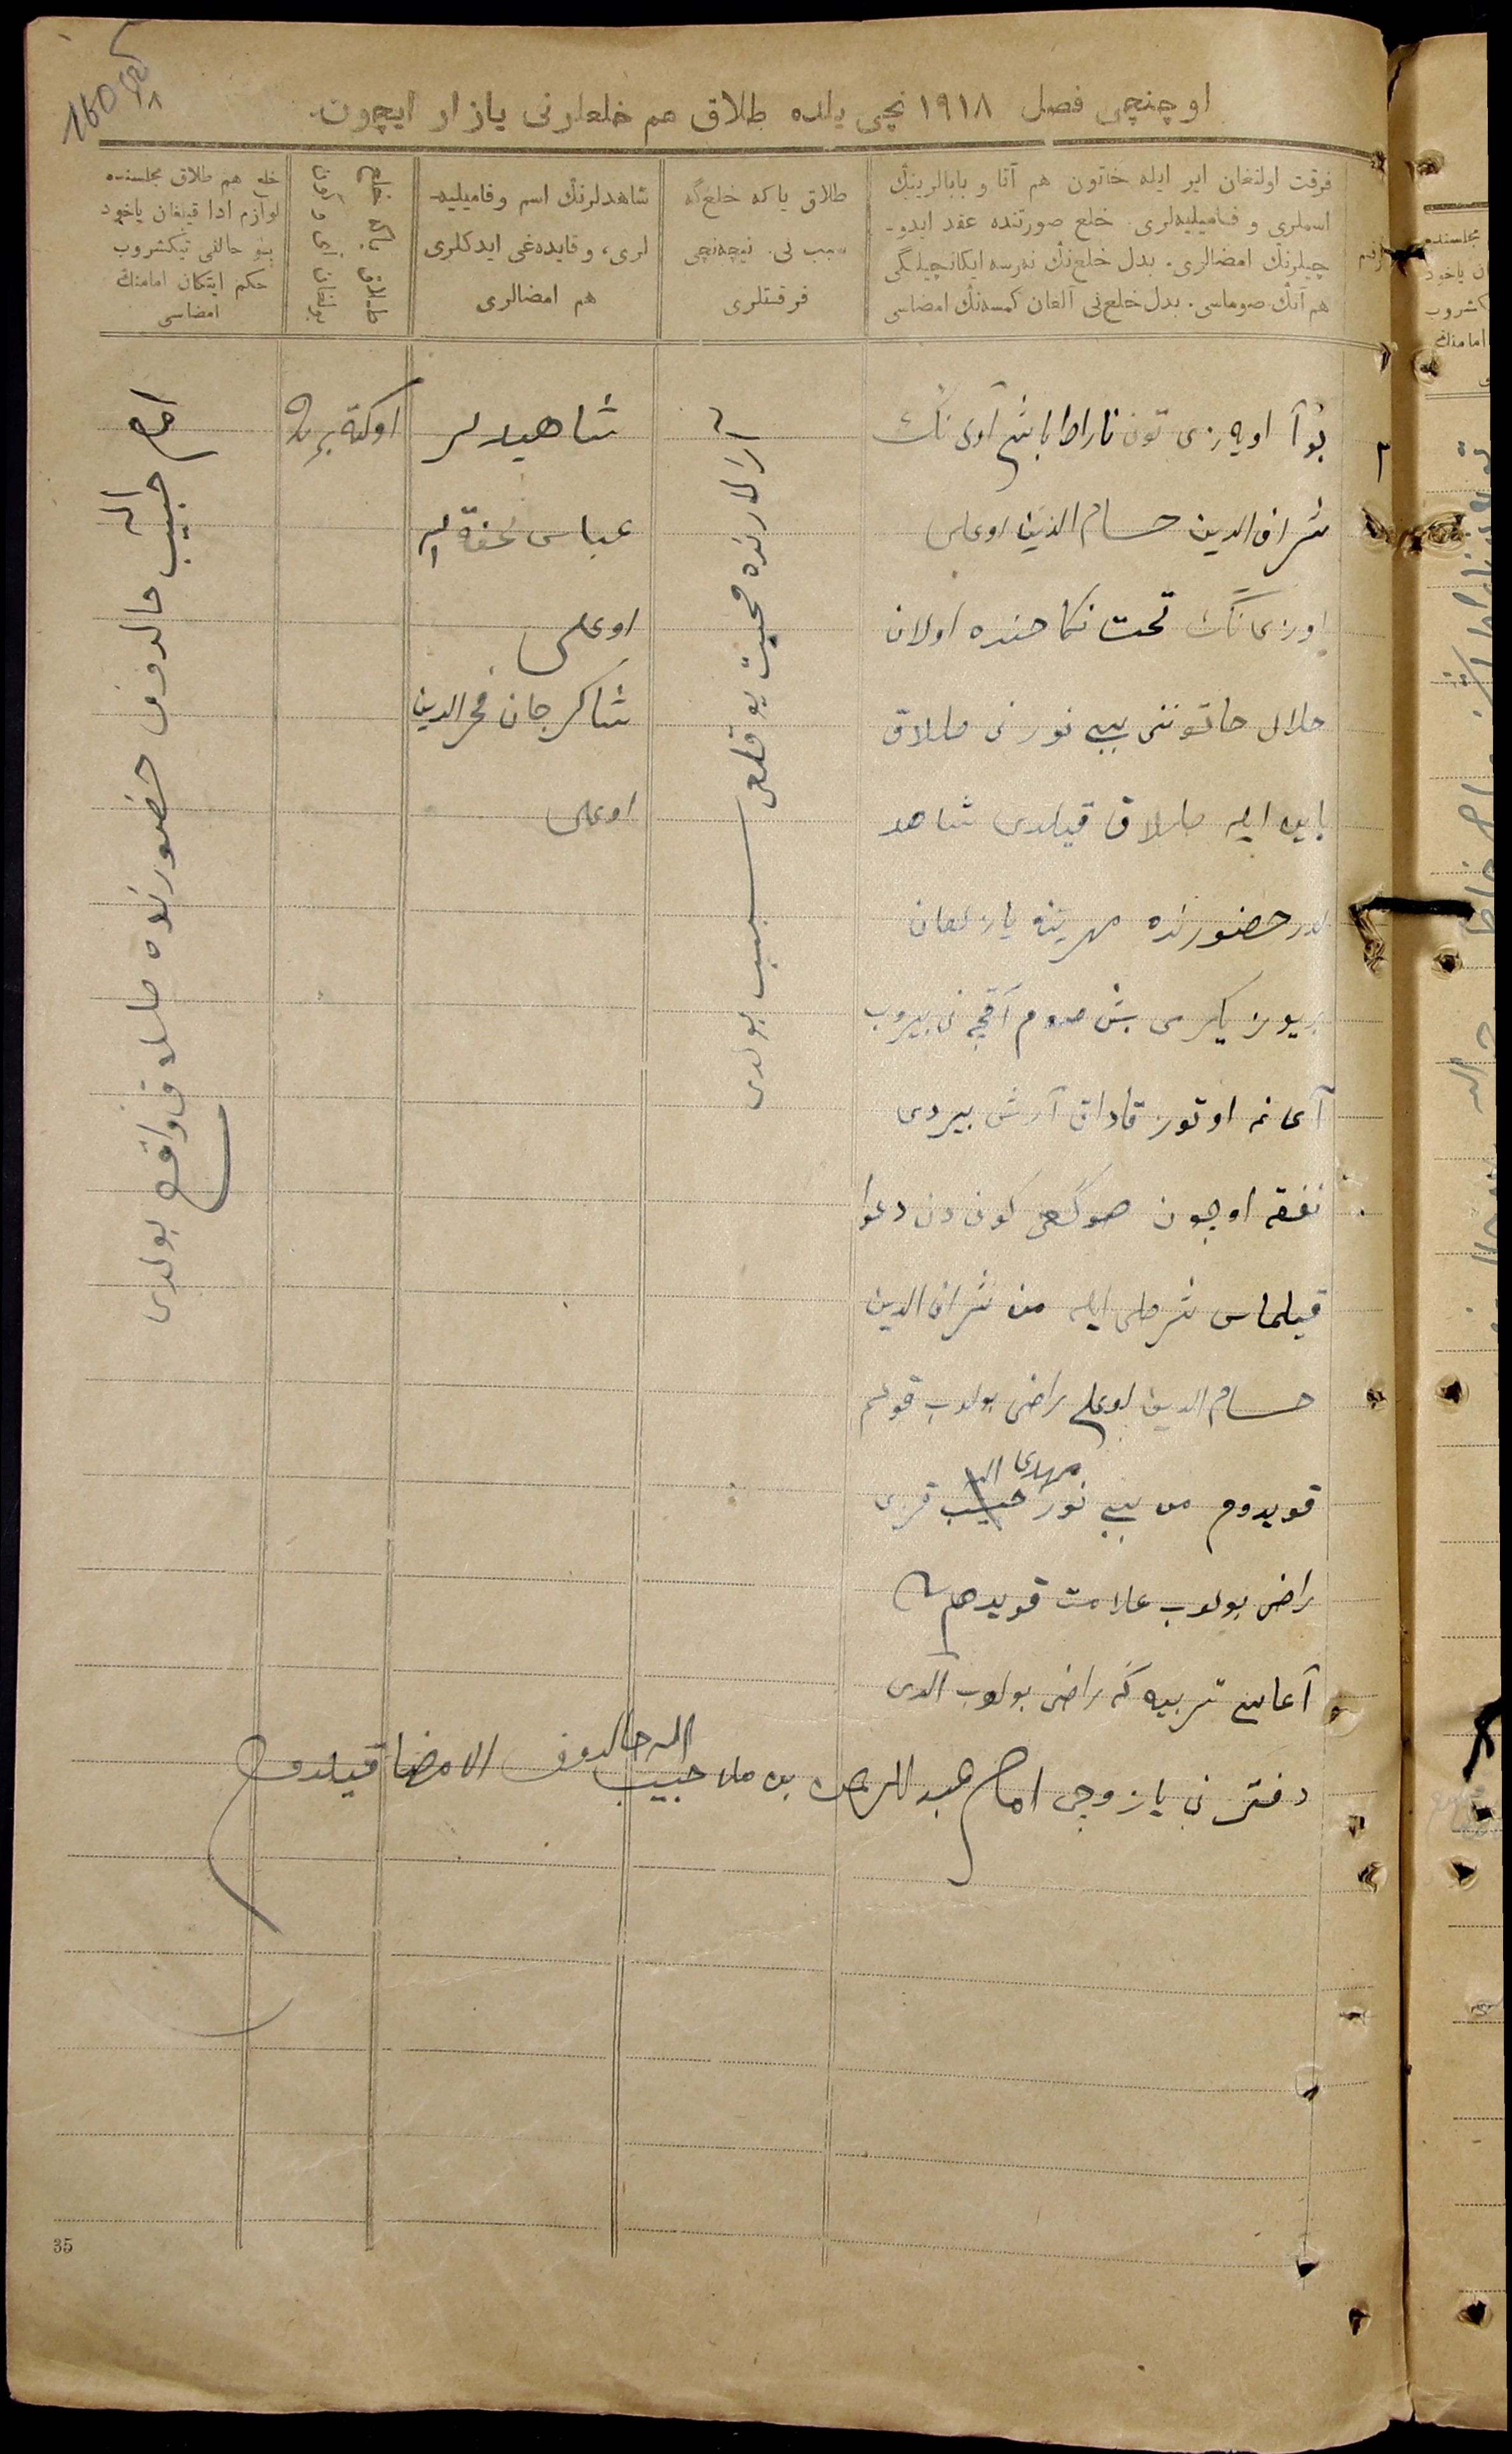 160
اوچنچی فصل ۱۹۱۸ نچی یلده طلاق هم خلعلرنی یازار ایچون.
فرقت اولنغان ایر ایله خاتون هم آتا و بابالرینڭ
اسملری و فامیلیه‌لری. خلع صورتنده عقد ایدو-
چیلرنڭ امضالری. بدل خلعنڭ نه‌رسه ایکانچیلگی
هم آنڭ صوماسی. بدل خلعنی آلغان کمسه‌نڭ امضاسی
طلاق یاکه خلع‌گه
سبب نی. نیچه‌نچی
فرقتلری
شاهدلرنڭ اسم و فامیلیه-
لری، و قایده‌غی ایدکلری
هم امضالری
طلاق یاکه خلع
بولغان آی و کون
خلع هم طلاق مجلسنده
لوازم ادا قیلغان یاخود
بنو حالنی تیکشروب
حکم ایتکان امامنڭ
امضاسی
۲
بوآ اویه‌زی تون ناراطباش آوی ننڭ
شراف الدین حسام الدین اوغلی
اوزی ننڭ تحت نکاحنده اولان
حلال خاتوننی بیبی نورنی طلاق
باین ایله طلاق قیلدی شاهد
لر حضورنده مهرینه یازلغان
بریوز یکرمی بش صوم آقچه نی بیروب
آی نه اوتوز قاداق آرش بیردی
نفقه اوچون صوڭغی کونی دن دعوا
قیلماس شرطی ایله من شراف الدین
حسام الدین اوغلی راضی بولوب قولم
قویدوم من بیبی نور مهدی الله قزی
راضی بولوب علامت قویدم
آغاسی تربیه که راضی بولوب آلدی
دفترنی یازوچی امام عبد الرحمن بن ملا حبیب الله خالدوف الامضا قیلدم
آرالارنده محبت یوقلغی سبب بولدی
شاهیدلر
عباس تحفة الله
اوغلی
شاکرجان فخرالدین
اوغلی
امام حبیب الله خالدوف حضورنده طلاق واقع بولدی
35